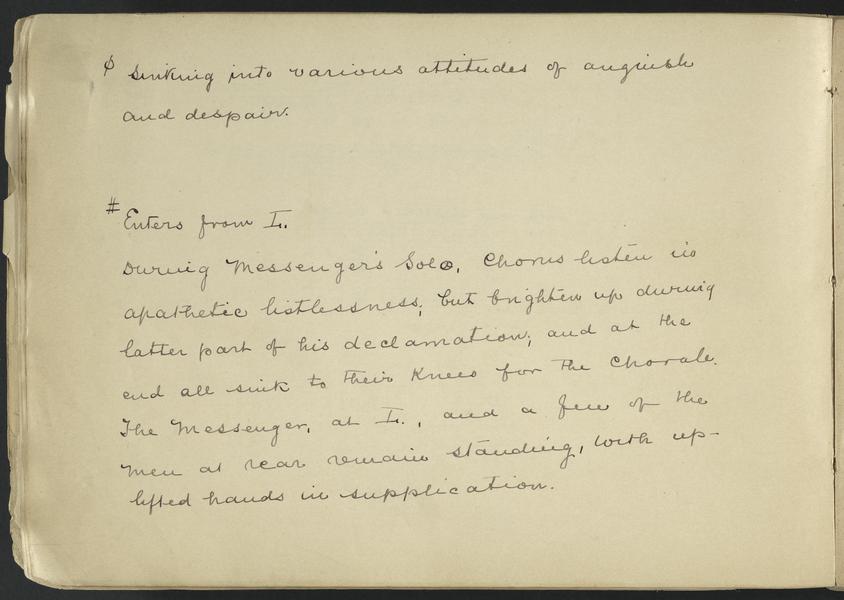 ∮ Sinking into various attitudes of anguish
and despair.
# Enters from L.
During Messenger's Solo, Chorus listen in
apathetic listlessness; but brighten up during
latter part of his declamation; and at the
end all sink to their Knees for the Chorale.
The Messenger, at L., and a few of the
men at rear remain standing, with up-
lifted hands in supplication.